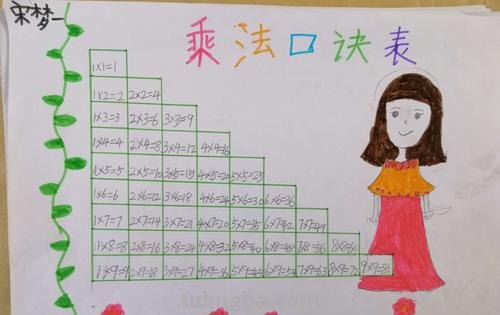 宋梦一
乘法口诀表
1×1=1
1×2=2 2×2=4
1×3=3 2×3=6 3×3=9
1×4=4 2×4=8 3×4=12 4×4=16
1×5=5 2×5=10 3×5=15 4×5=20 5×5=25
1×6=6 2×6=12 3×6=18 4×6=24 5×6=30 6×6=36
1×7=7 2×7=14 3×7=21 5×7=35 6×7=42 7×7=49
1×8=8 2×8=16 3×8=24 4×8=32 5×8=40 6×8=48 7×8=56
1×9=9 2×9=18 3×9=27 4×9=36 5×9=45 6×9=54 7×9=63 8×9=72 9×9=81